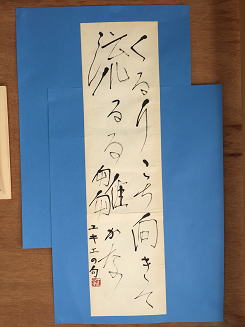 くるりこち向きて
流るる雛かな
ユキエの句